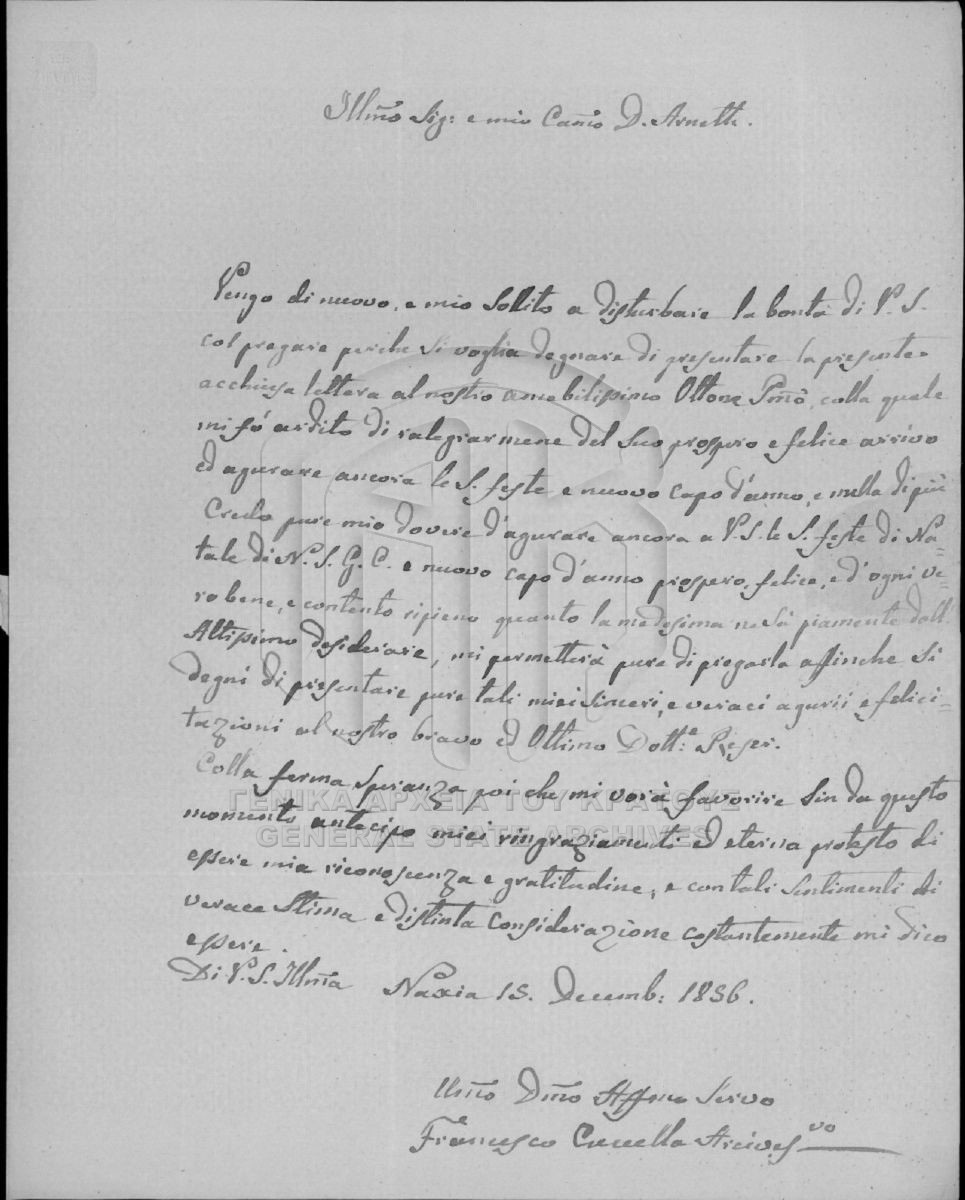 Illm̃o Sig: e mio Carm̃o D. Arneth.
Vengo di nuovo, e mio Sollito a disturbare la bontà di V. S.
col pregare perche Si voglia degnare di presentare la presente
acchiusa lettera al nostro amabilissimo Ottone Pm̃o, colla quale
mi fò ardito di ralegrarmene del Suo prospero e felice arrivo
ed agurare ancora le S. feste e nuovo capo d'anno, e nulla di più
Credo pure mio dovere d'agurare ancora a V. S. le S. feste di Na=
tale di N. S. G. C. e nuovo capo d'anno prospero, felice, e d'ogni ve=
ro bene, e contento ripieno quanto la medesima ne Sà piamente dall'
Altissimo desiderare, mi permetterà pure di pregarla affinche Si
degni di presentare pure tali miei Sinceri, e veraci agurii e felici=
tazioni al nostro bravo ed Ottimo Dott:e Reser.
Colla ferma Speranza poi che mi vorà favorire Sin da questo
momento antecipo miei ringraziamenti ed eterna protesto di
essere mia riconoscenza e gratitudine, e con tali Sentimenti di
verace Stima e distinta Considerazione costantemente mi dico
essere.
Di V. S. Illm̃a Naxia 15. Decemb: 1836.
Um̃o Dm̃o Affmo Servo
Francesco Cuculla Arcives.vo
ΓΕΝΙΚΑ ΑΡΧΕΙΑ ΤΟΥ ΚΡΑΤΟΥΣ
GENERAL STATE ARCHIVES